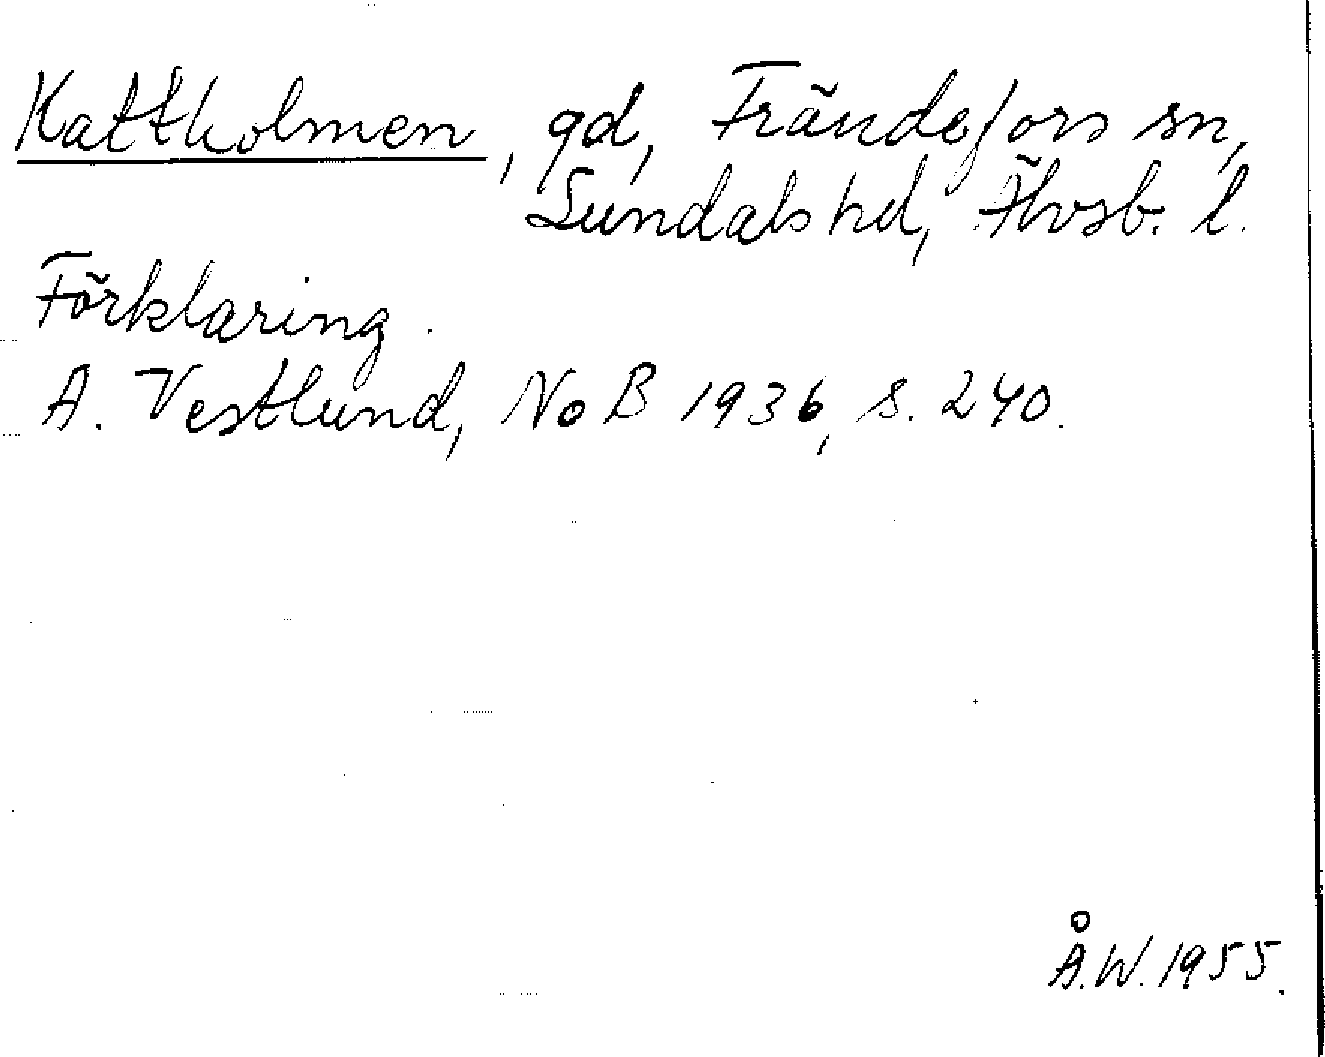 Kattholmen, gd, Frändefors sn,
Sundals hd, Älvsb. l.
Förklaring.
A. Vestlund, NoB 1936, s. 240.
Å.W. 1955.